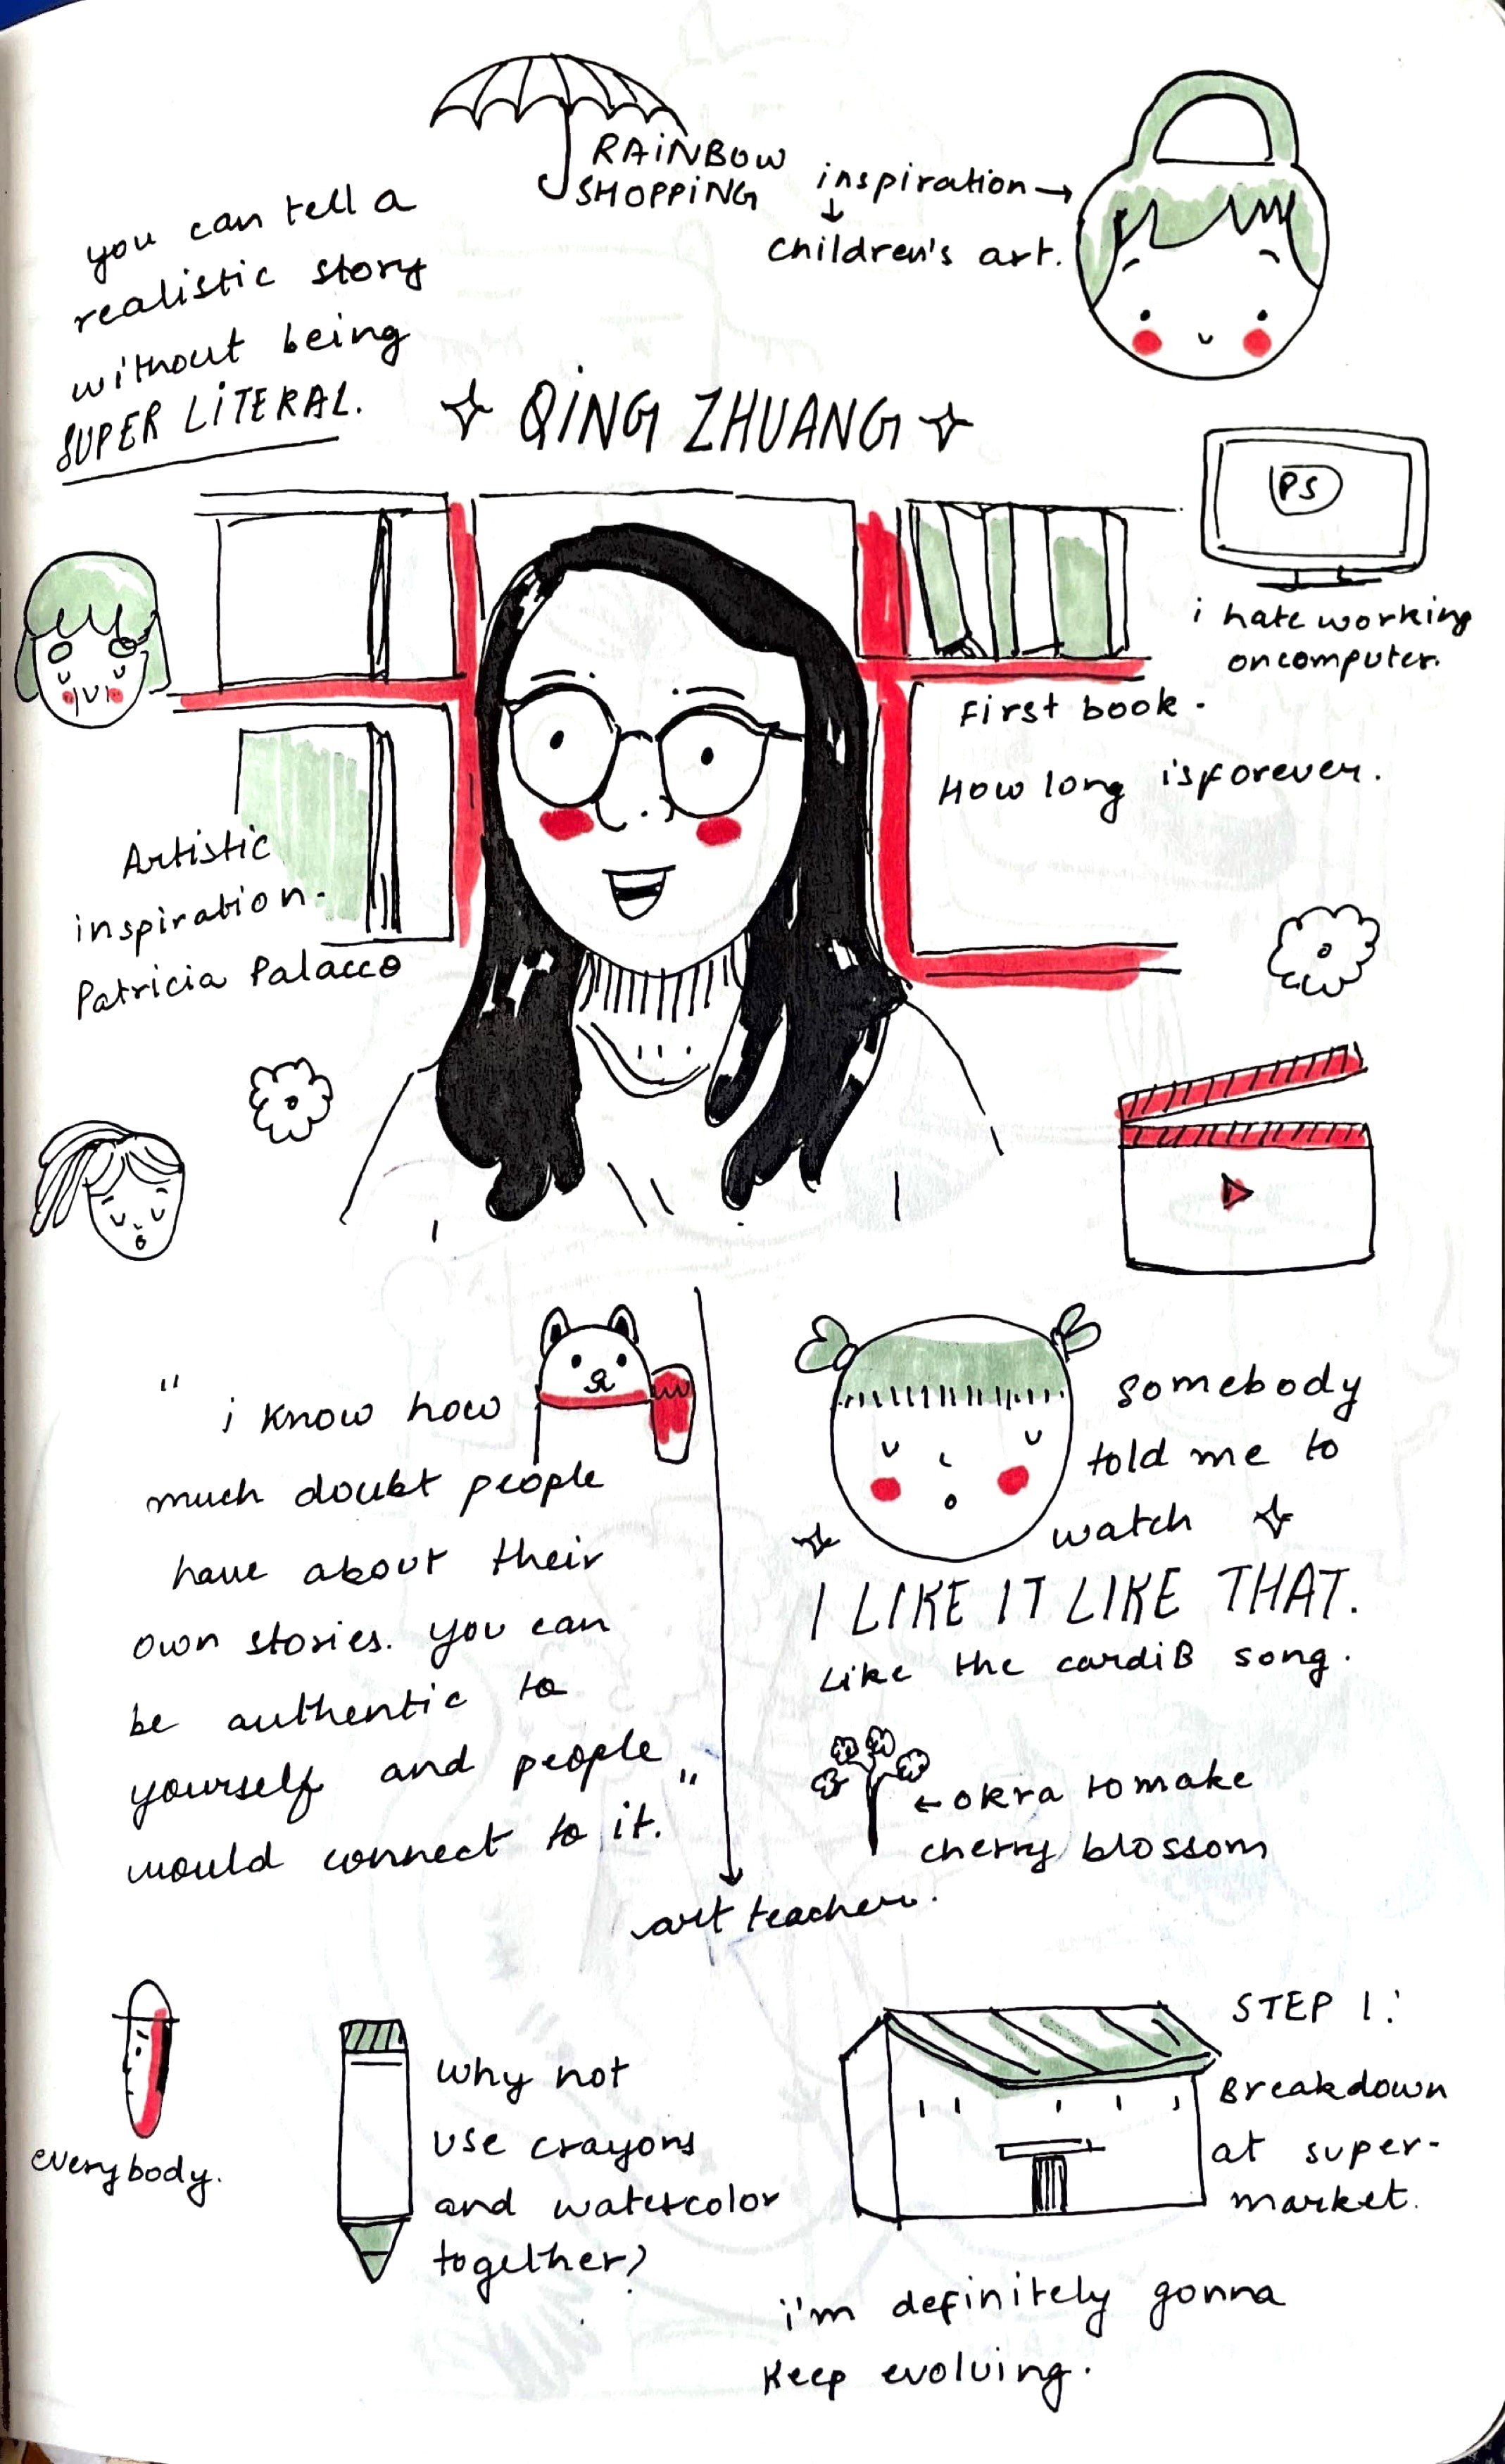 RAiNBOW
SHOPPiNG
inspiration →
↓
children's art.
you can tell a
realistic story
without being
SUPER LiTERAL.
QiNG ZHUANG
PS
i hate working
on computer.
First book.
How long is forever.
Artistic
inspiration.
Patricia Palacco
"i know how
much doubt people
have about their
own stories. you can
be authentic to
yourself and people
would connect to it."
somebody
told me to
watch
I LIKE IT LIKE THAT.
Like the cardiB song.
← okra to make
cherry blossom
art teacher.
everybody.
why not
use crayons
and watercolor
together?
STEP 1:
Breakdown
at super-
market.
i'm definitely gonna
keep evolving.